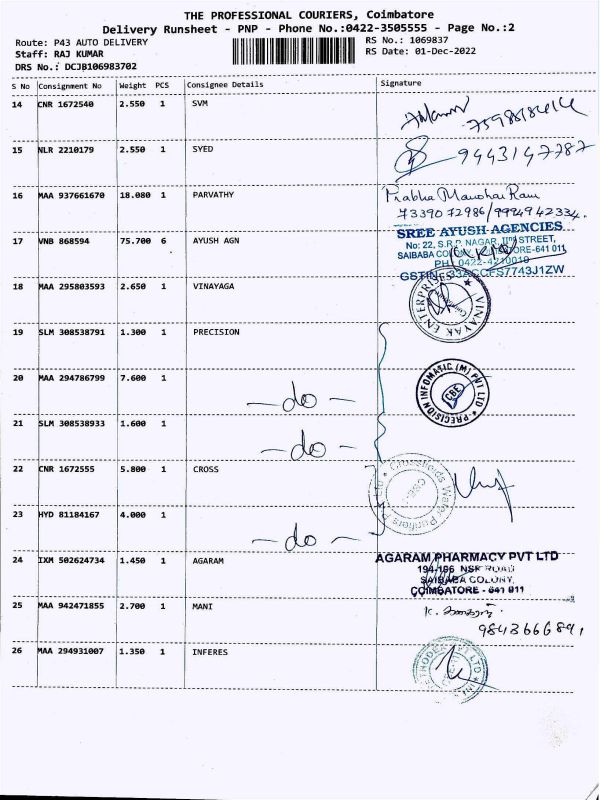 THE PROFESSIONAL COURIERS, Coimbatore
Delivery Runsheet - PNP - Phone No.:0422-3505555 - Page No.:2
Route: P43 AUTO DELIVERY
Staff: RAJ KUMAR
DRS No.: DCJB106983702
RS No.: 1069837
RS Date: 01-Dec-2022
S No Consignment No Weight PCS Consignee Details Signature
14 CNR 1672540 2.550 1 SVM
15 NLR 2210179 2.550 1 SYED
9443147787
16 MAA 937661670 18.080 1 PARVATHY
Prabha Manohar Ram
73390 72986/9994942334.
17 VNB 868594 75.700 6 AYUSH AGN
SREE AYUSH AGENCIES
No: 22, S.R.P. NAGAR, STREET,
SAIBABA COLONY, COIMBATORE-641 011
PH: 0422-4210019
GSTIN: 33ACCFS7743J1ZW
18 MAA 295803593 2.650 1 VINAYAGA
VINAYAK ENTERPRISES
19 SLM 308538791 1.300 1 PRECISION
20 MAA 294786799 7.600 1
- do -
PRECISION INFOMATIC (M) PVT LTD
CBE
21 SLM 308538933 1.600 1
- do -
22 CNR 1672555 5.800 1 CROSS
Crossfields Water Purifiers
23 HYD 81184167 4.000 1
- do -
24 IXM 502624734 1.450 1 AGARAM
AGARAM PHARMACY PVT LTD
194-196 NSR ROAD
SAIBABA COLONY,
COIMBATORE - 641 011
25 MAA 942471855 2.700 1 MANI
9843666891
26 MAA 294931007 1.350 1 INFERES